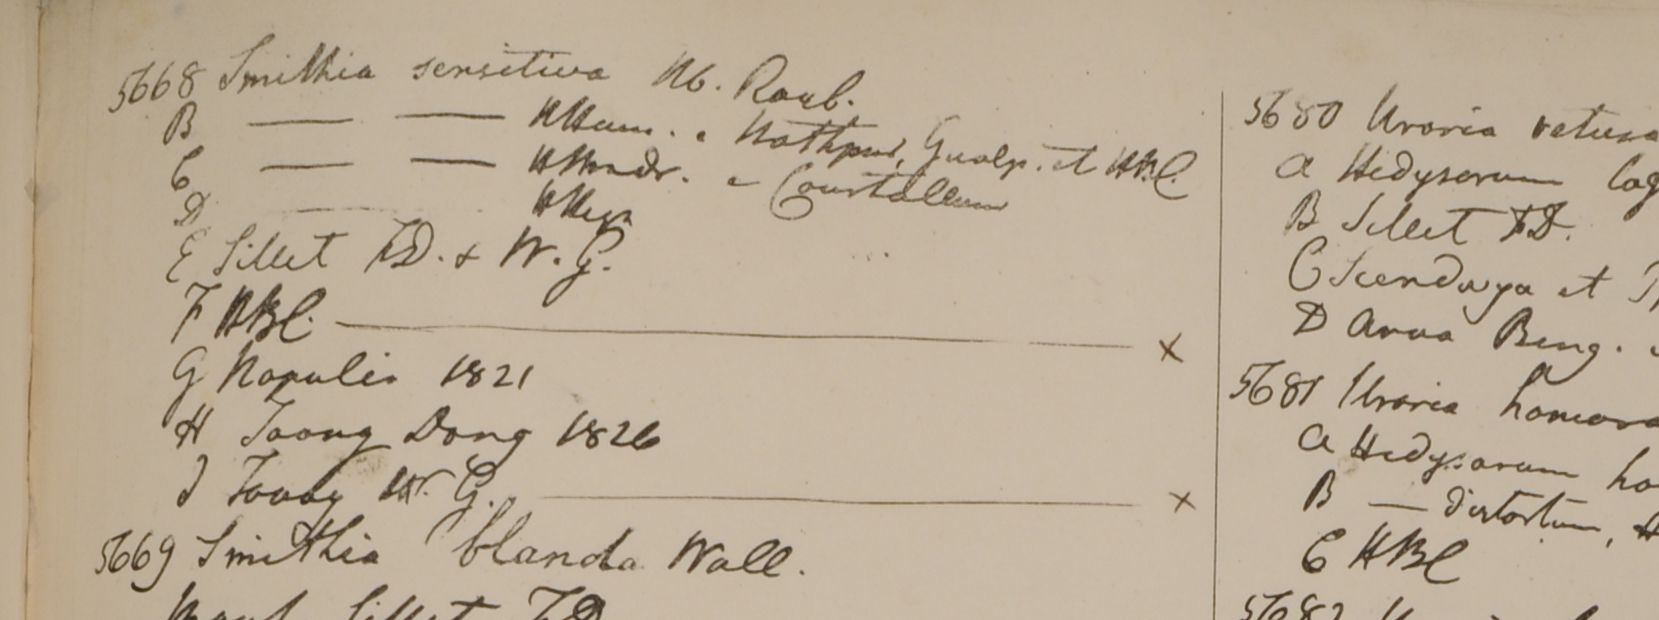 5668 Smithia sensitiva Hb. Roxb.
B — — HHam. e Nathpur, Gualp. et HBC.
C — — HMadr. e Courtallum
D — — HHeyn
E Sillet FD. & W. G.
F HBC. — x
G Napalia 1821
H Toong Dong 1826
I Tavoy W. G. — x
5669 Smithia blanda Wall.
Sillet FD
5680 Uraria retusa
A Hedysarum lag
B Sillet FD.
C et
D Arva Beng.
5681 Uraria hamosa
A Hedysarum ha
B — distortum, H
C HBC
5682